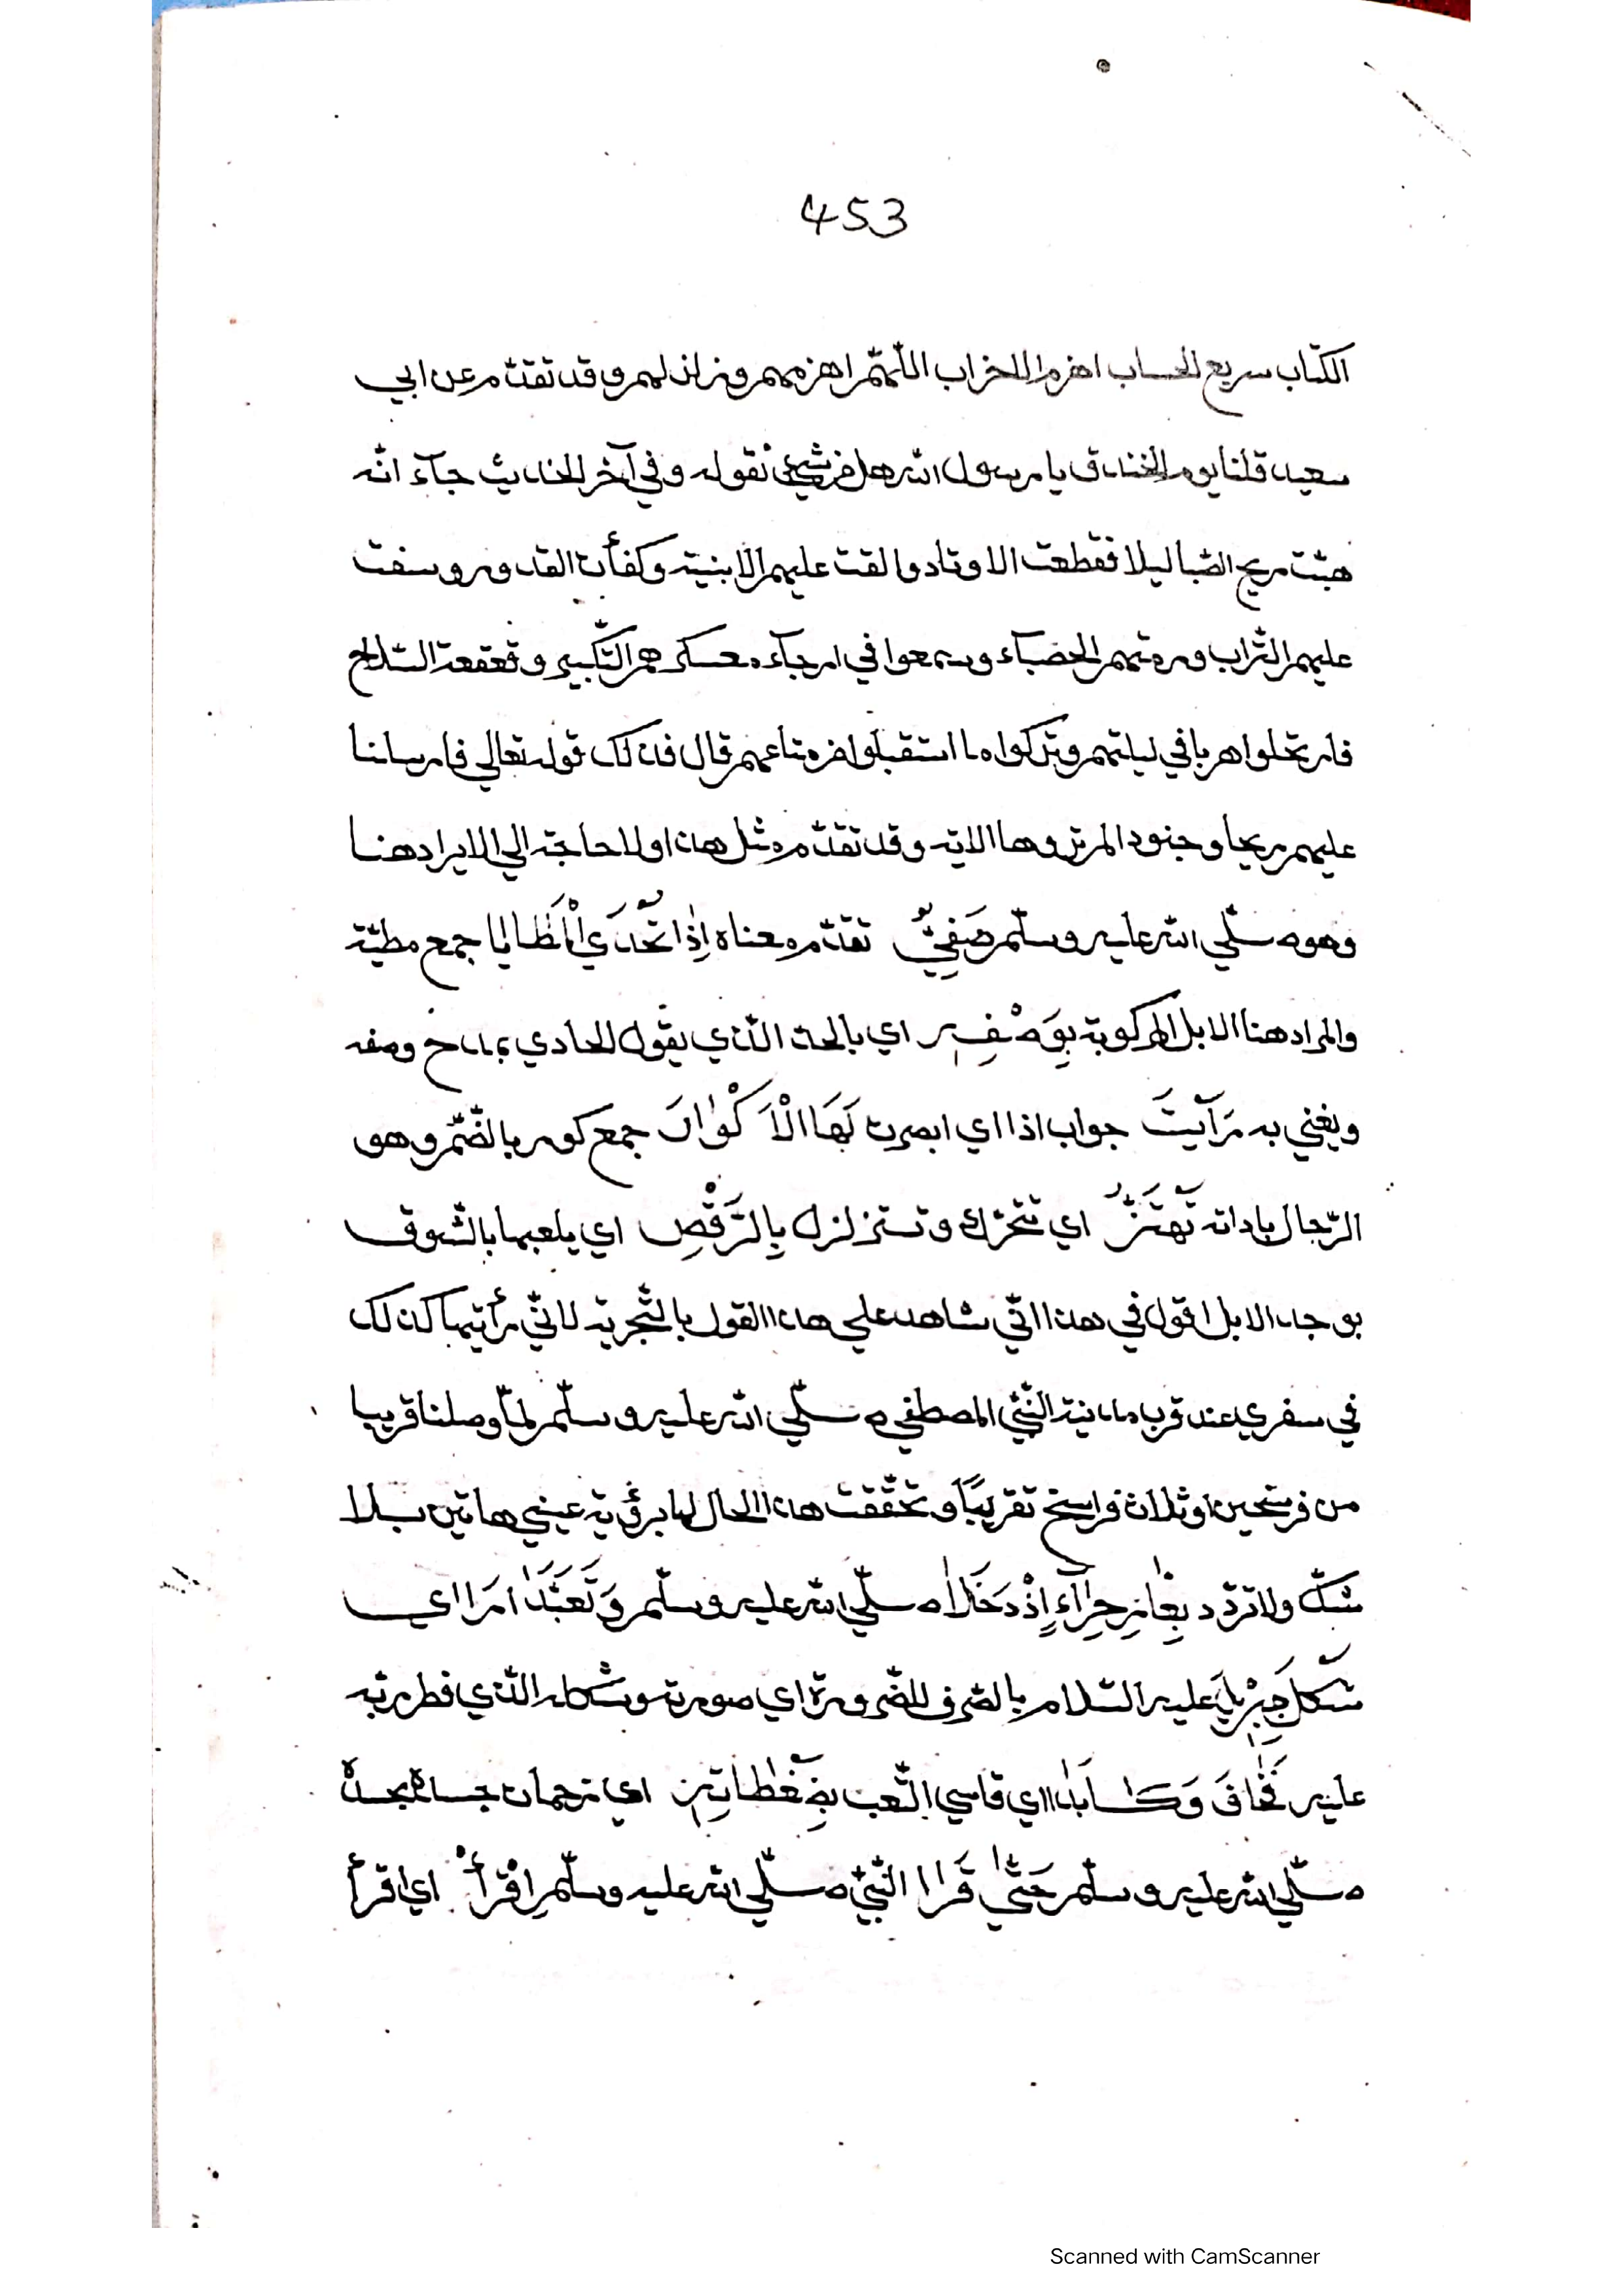 453
الكتاب سريع الحساب اهزم الاحزاب اللّهمّ اهزمهم وزلزلهم وقد تقدّم عن ابي
سعيد قلنا يوم الخندق يا رسول الله هل من شيئ نقوله وفي آخر الحديث جآء انّه
هبّت ريح الصّبا ليلا فقطعت الاوتاد والقت عليهم الابنية وكفأت القدور وسفت
عليهم التّراب ورمتهم الحصبآء وسمعوا في ارجآء معسكرهم التّكبير وقعقعة السّلاح
فارتحلوا هربا في ليلتهم وتركوا ما استقبلوا من متاعهم قال فذلك قوله تعالي فارسلنا
عليهم ريحا وجنودا لم تروها الاية وقد تقدّم مثل هذا ولا حاجة الي الايراد هنا
وهو صلّي الله عليه وسلّم صَفِيٌّ تقدّم معناه اِذَا تُحْدَي الْمَطَايَا جمع مطيّة
والمراد هنا الابل المركوبة بِوَصْفِهِ اي بالحدا الّذي يقول الحادي بمدح وصفه
ويغني به رَاَيْتَ جواب اذا اي ابصرت لَهَا الْاَكْوَارَ جمع كور بالضّمّ وهو
الرّحال باداته تَهْتَزُّ اي تتحرّك وتستزلزل بِالرَّقْصِ اي يلعبها بالشّوق
بوجد الابل اقول في هذا انّي شاهد علي هذا القول بالتّجربة لانّي رأيتها كذلك
في سفري عند قرب مدينة النّبيّ المصطفي صلّي الله عليه وسلّم لمّا وصلنا قريبا
من فرسخين او ثلاث فراسخ تقريبًا وتحقّقت هذا الحال لها برؤية عيني هاتين بلا
شكّ ولا تردّد بِغَارِ حِرَآءٍ اِذْ دَخَلَا صلّي الله عليه وسلّم وَتَعَبَّدَا رَاَا اي
شَكْلَ جِبْرِيلَ عليه السّلام بالصّرف للضّرورة اي صورته وشكله الّذي فطره ربّه
عليه فَخَافَ وَكَابَدَا اي قاسي التّعب بِضَغْطَاتِهِ اي زحمات جسده بجسده
صلّي الله عليه وسلّم حَتَّي قَرَاَ النّبيّ صلّي الله عليه وسلّم اِقْرَأْ اي اقرأ
Scanned with CamScanner